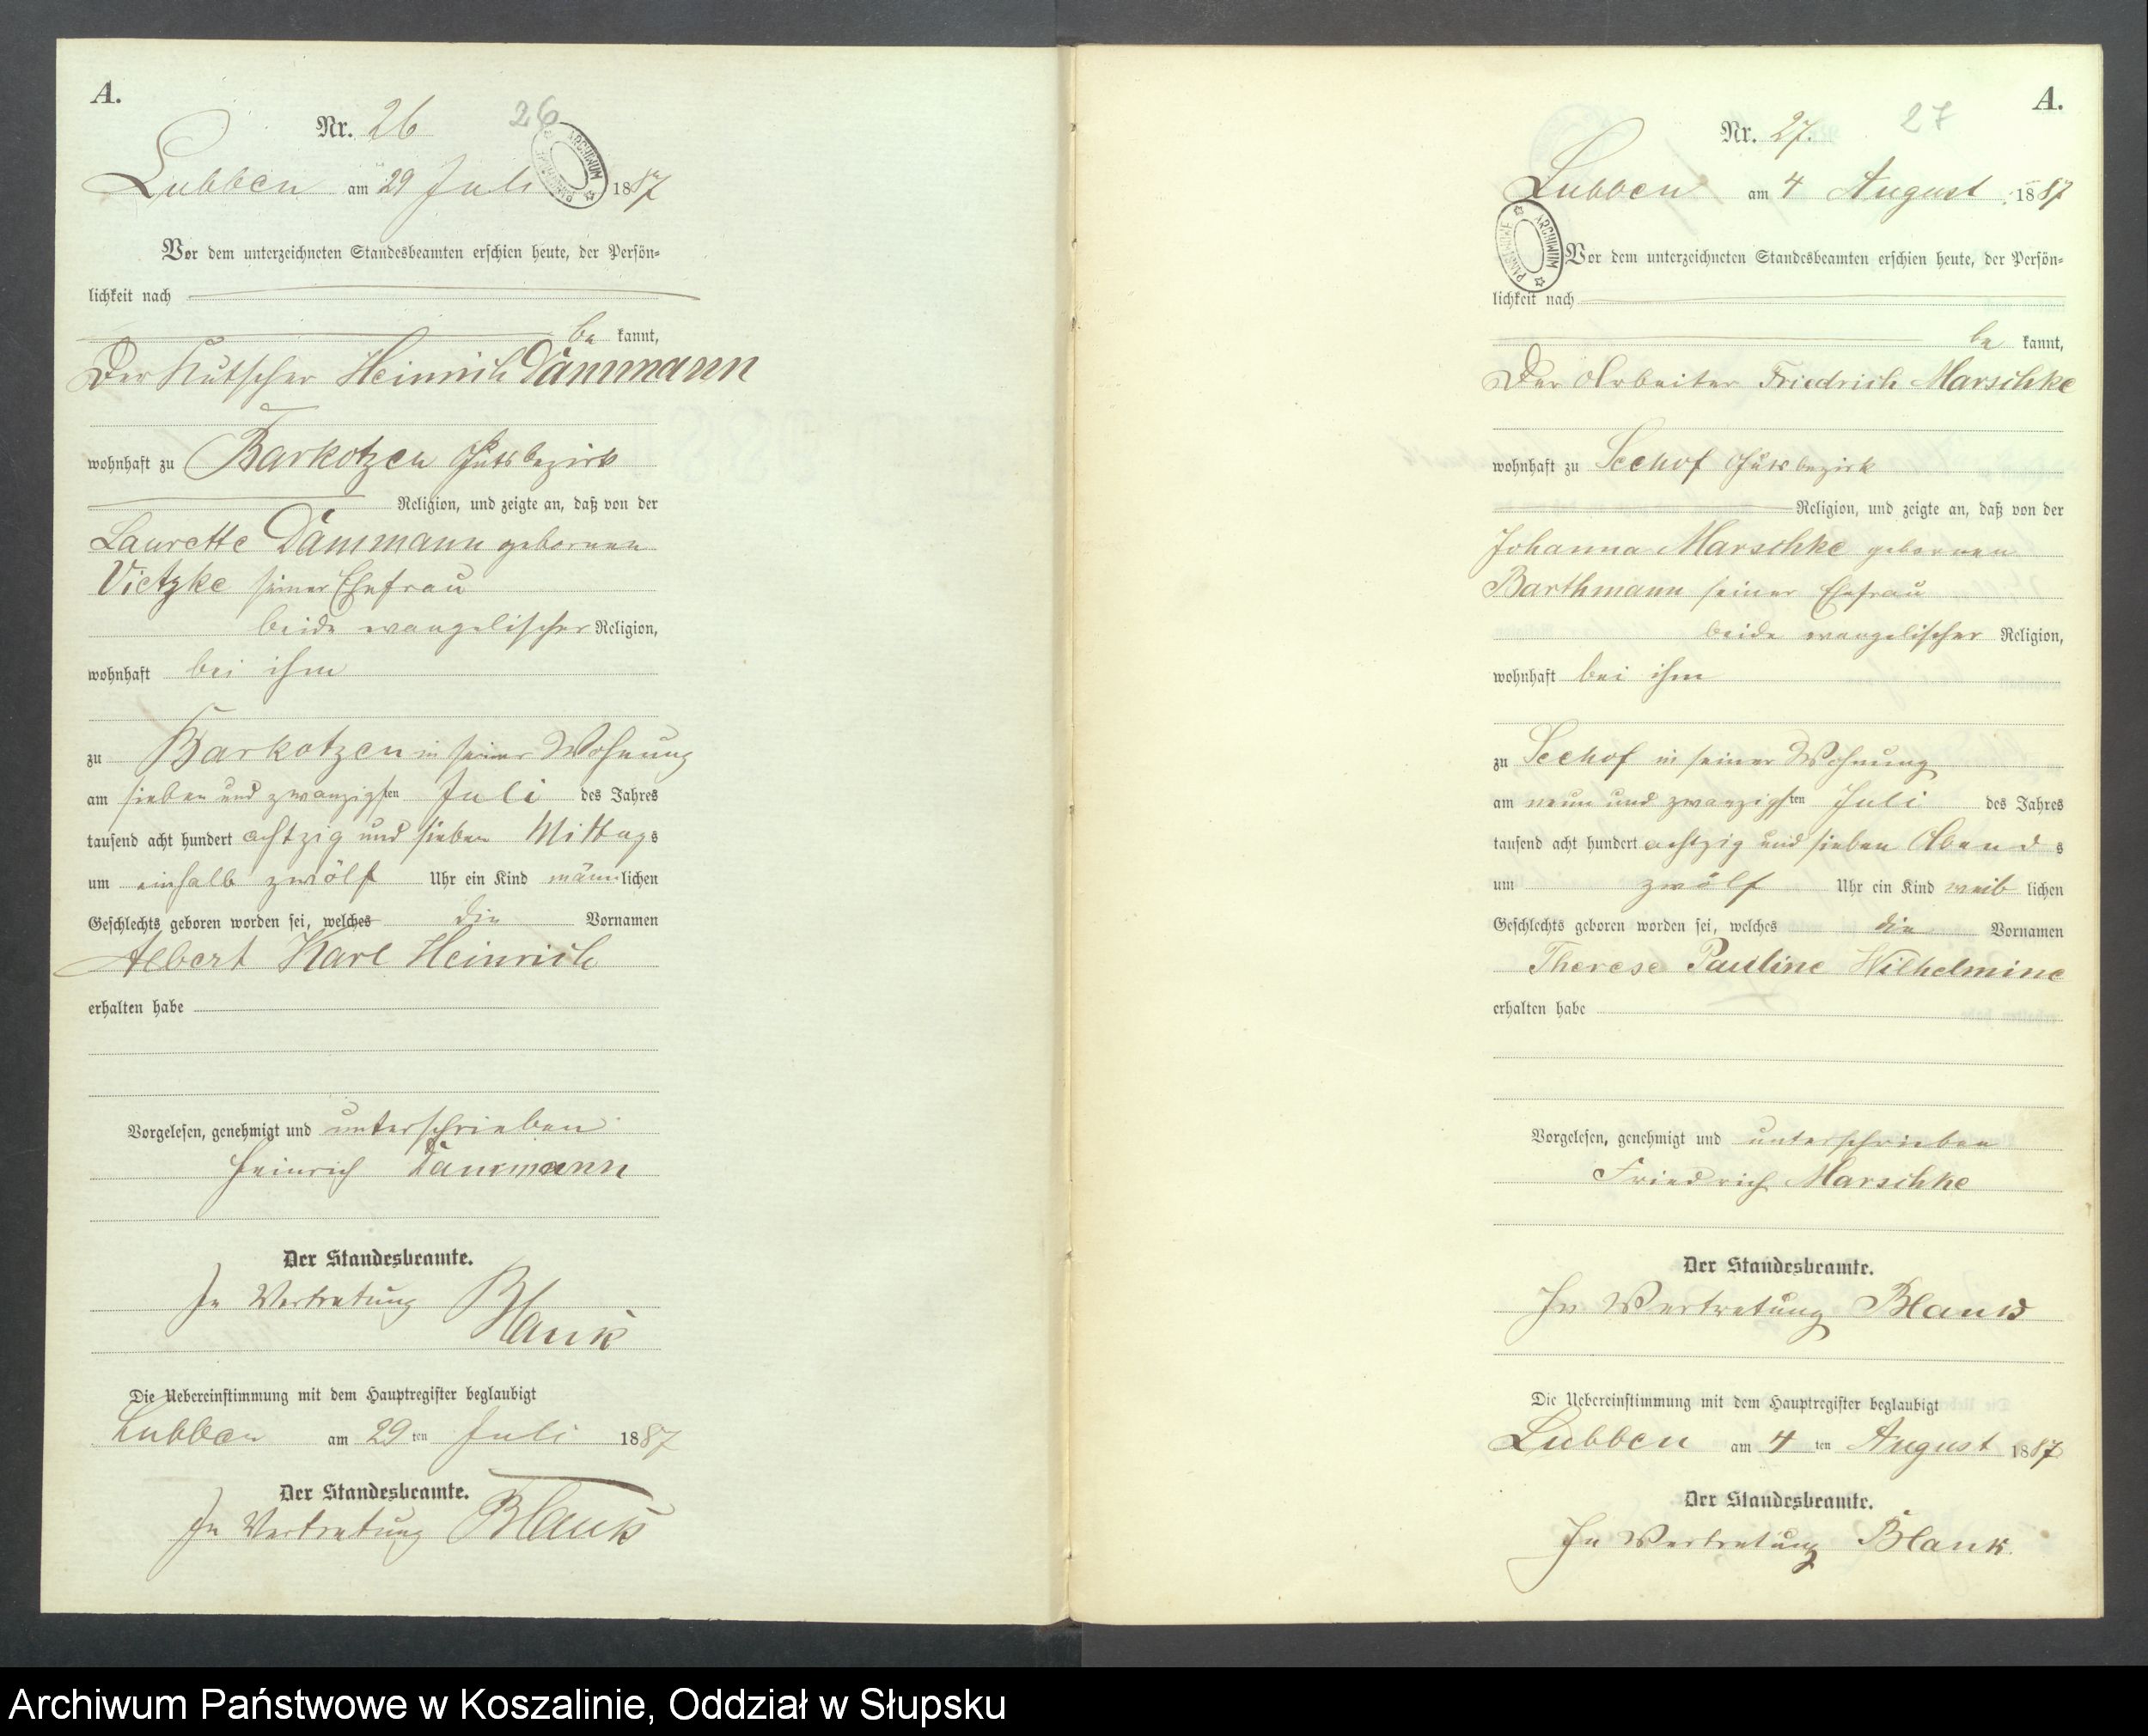 A.
Nr. 26
26
Lubben am 29 Juli 1887
Vor dem unterzeichneten Standesbeamten erschien heute, der Persön-
lichkeit nach
be kannt,
Der Kutscher Heinrich Dammann
wohnhaft zu Barkotzen Gutsbezirk
Religion, und zeigte an, daß von der
Laurette Dammann gebornen
Vietzke seiner Ehefrau
beide evangelischer Religion,
wohnhaft bei ihm
zu Barkotzen in seiner Wohnung
am sieben und zwanzigsten Juli des Jahres
tausend acht hundert achtzig und sieben Mittags
um einhalb zwölf Uhr ein Kind männlichen
Geschlechts geboren worden sei, welches die Vornamen
Albert Karl Heinrich
erhalten habe
Vorgelesen, genehmigt und unterschrieben
Heinrich Dammann
Der Standesbeamte.
In Vertretung Blank
Die Uebereinstimmung mit dem Hauptregister beglaubigt
Lubben am 29ten Juli 1887
Der Standesbeamte.
In Vertretung Blank
A.
Nr. 27.
27
Lubben am 4 August 1887
ARCHIWUM PAŃSTWOWE
Vor dem unterzeichneten Standesbeamten erschien heute, der Persön-
lichkeit nach
be kannt,
Der Arbeiter Friedrich Marschke
wohnhaft zu Seehof Gutsbezirk
Religion, und zeigte an, daß von der
Johanna Marschke gebornen
Barthmann seiner Ehefrau
beide evangelischer Religion,
wohnhaft bei ihm
zu Seehof in seiner Wohnung
am neun und zwanzigsten Juli des Jahres
tausend acht hundert achtzig und sieben Abends
um zwölf Uhr ein Kind weiblichen
Geschlechts geboren worden sei, welches die Vornamen
Therese Pauline Wilhelmine
erhalten habe
Vorgelesen, genehmigt und unterschrieben
Friedrich Marschke
Der Standesbeamte.
In Vertretung Blank
Die Uebereinstimmung mit dem Hauptregister beglaubigt
Lubben am 4 ten August 1887
Der Standesbeamte.
In Vertretung Blank.
Archiwum Państwowe w Koszalinie, Oddział w Słupsku